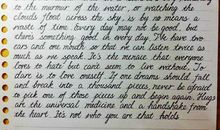 to the murmur of the water, or watching the
clouds float across the sky, is by no means a
waste of time. Every day may not be good, but
there's something good in every day. We have two
ears and one mouth so that we can listen twice as
much as we speak. It's the menace that everyone
loves to hate but can't seem to live without. To
dare is to lose oneself. If one dreams should fall
and break into a thousand pieces, never be afraid
to pick one of those pieces up and begin again. Hugs
are the universal medicine and a handshake from
the heart. It's not who you are that holds